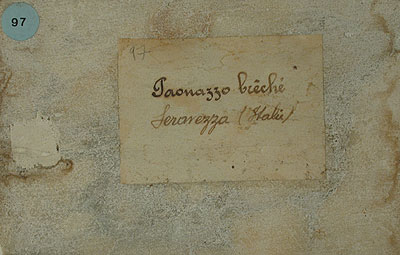 97
17
Paonazzo brêché
Seravezza (Italie)